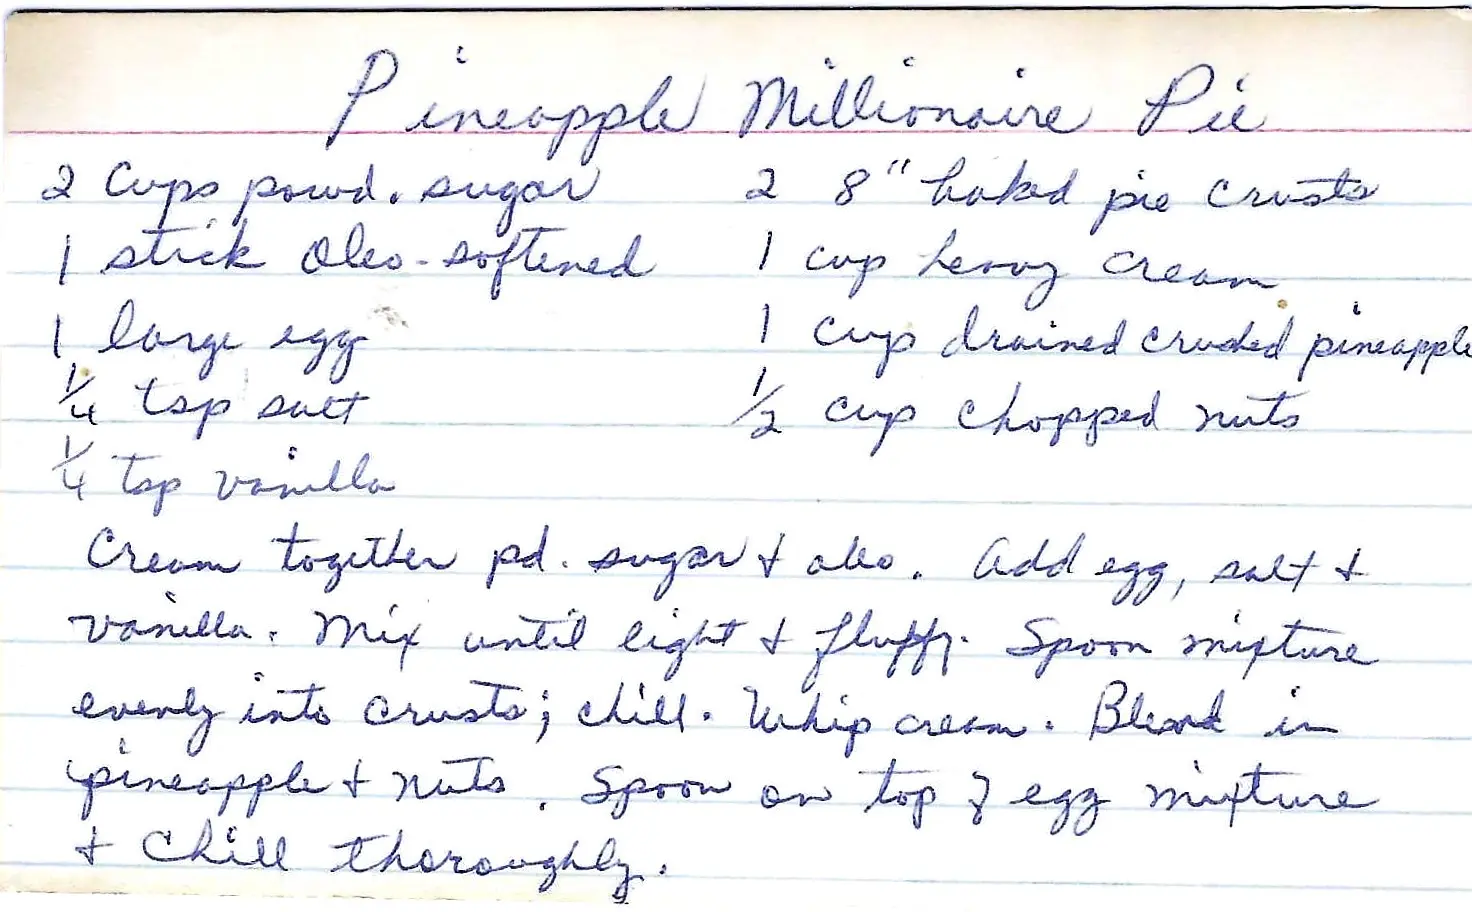 Pineapple Millionaire Pie
2 Cups powd. sugar
1 stick Oleo-softened
1 large egg
1/4 tsp salt
1/4 tsp vanilla
2 8" baked pie crusts
1 cup heavy cream
1 cup drained crushed pineapple
1/2 cup chopped nuts
Cream together pd. sugar & oleo. Add egg, salt &
vanilla. Mix until light & fluffy. Spoon mixture
evenly into crusts; chill. Whip cream. Blend in
pineapple & nuts. Spoon on top of egg mixture
& chill thoroughly.